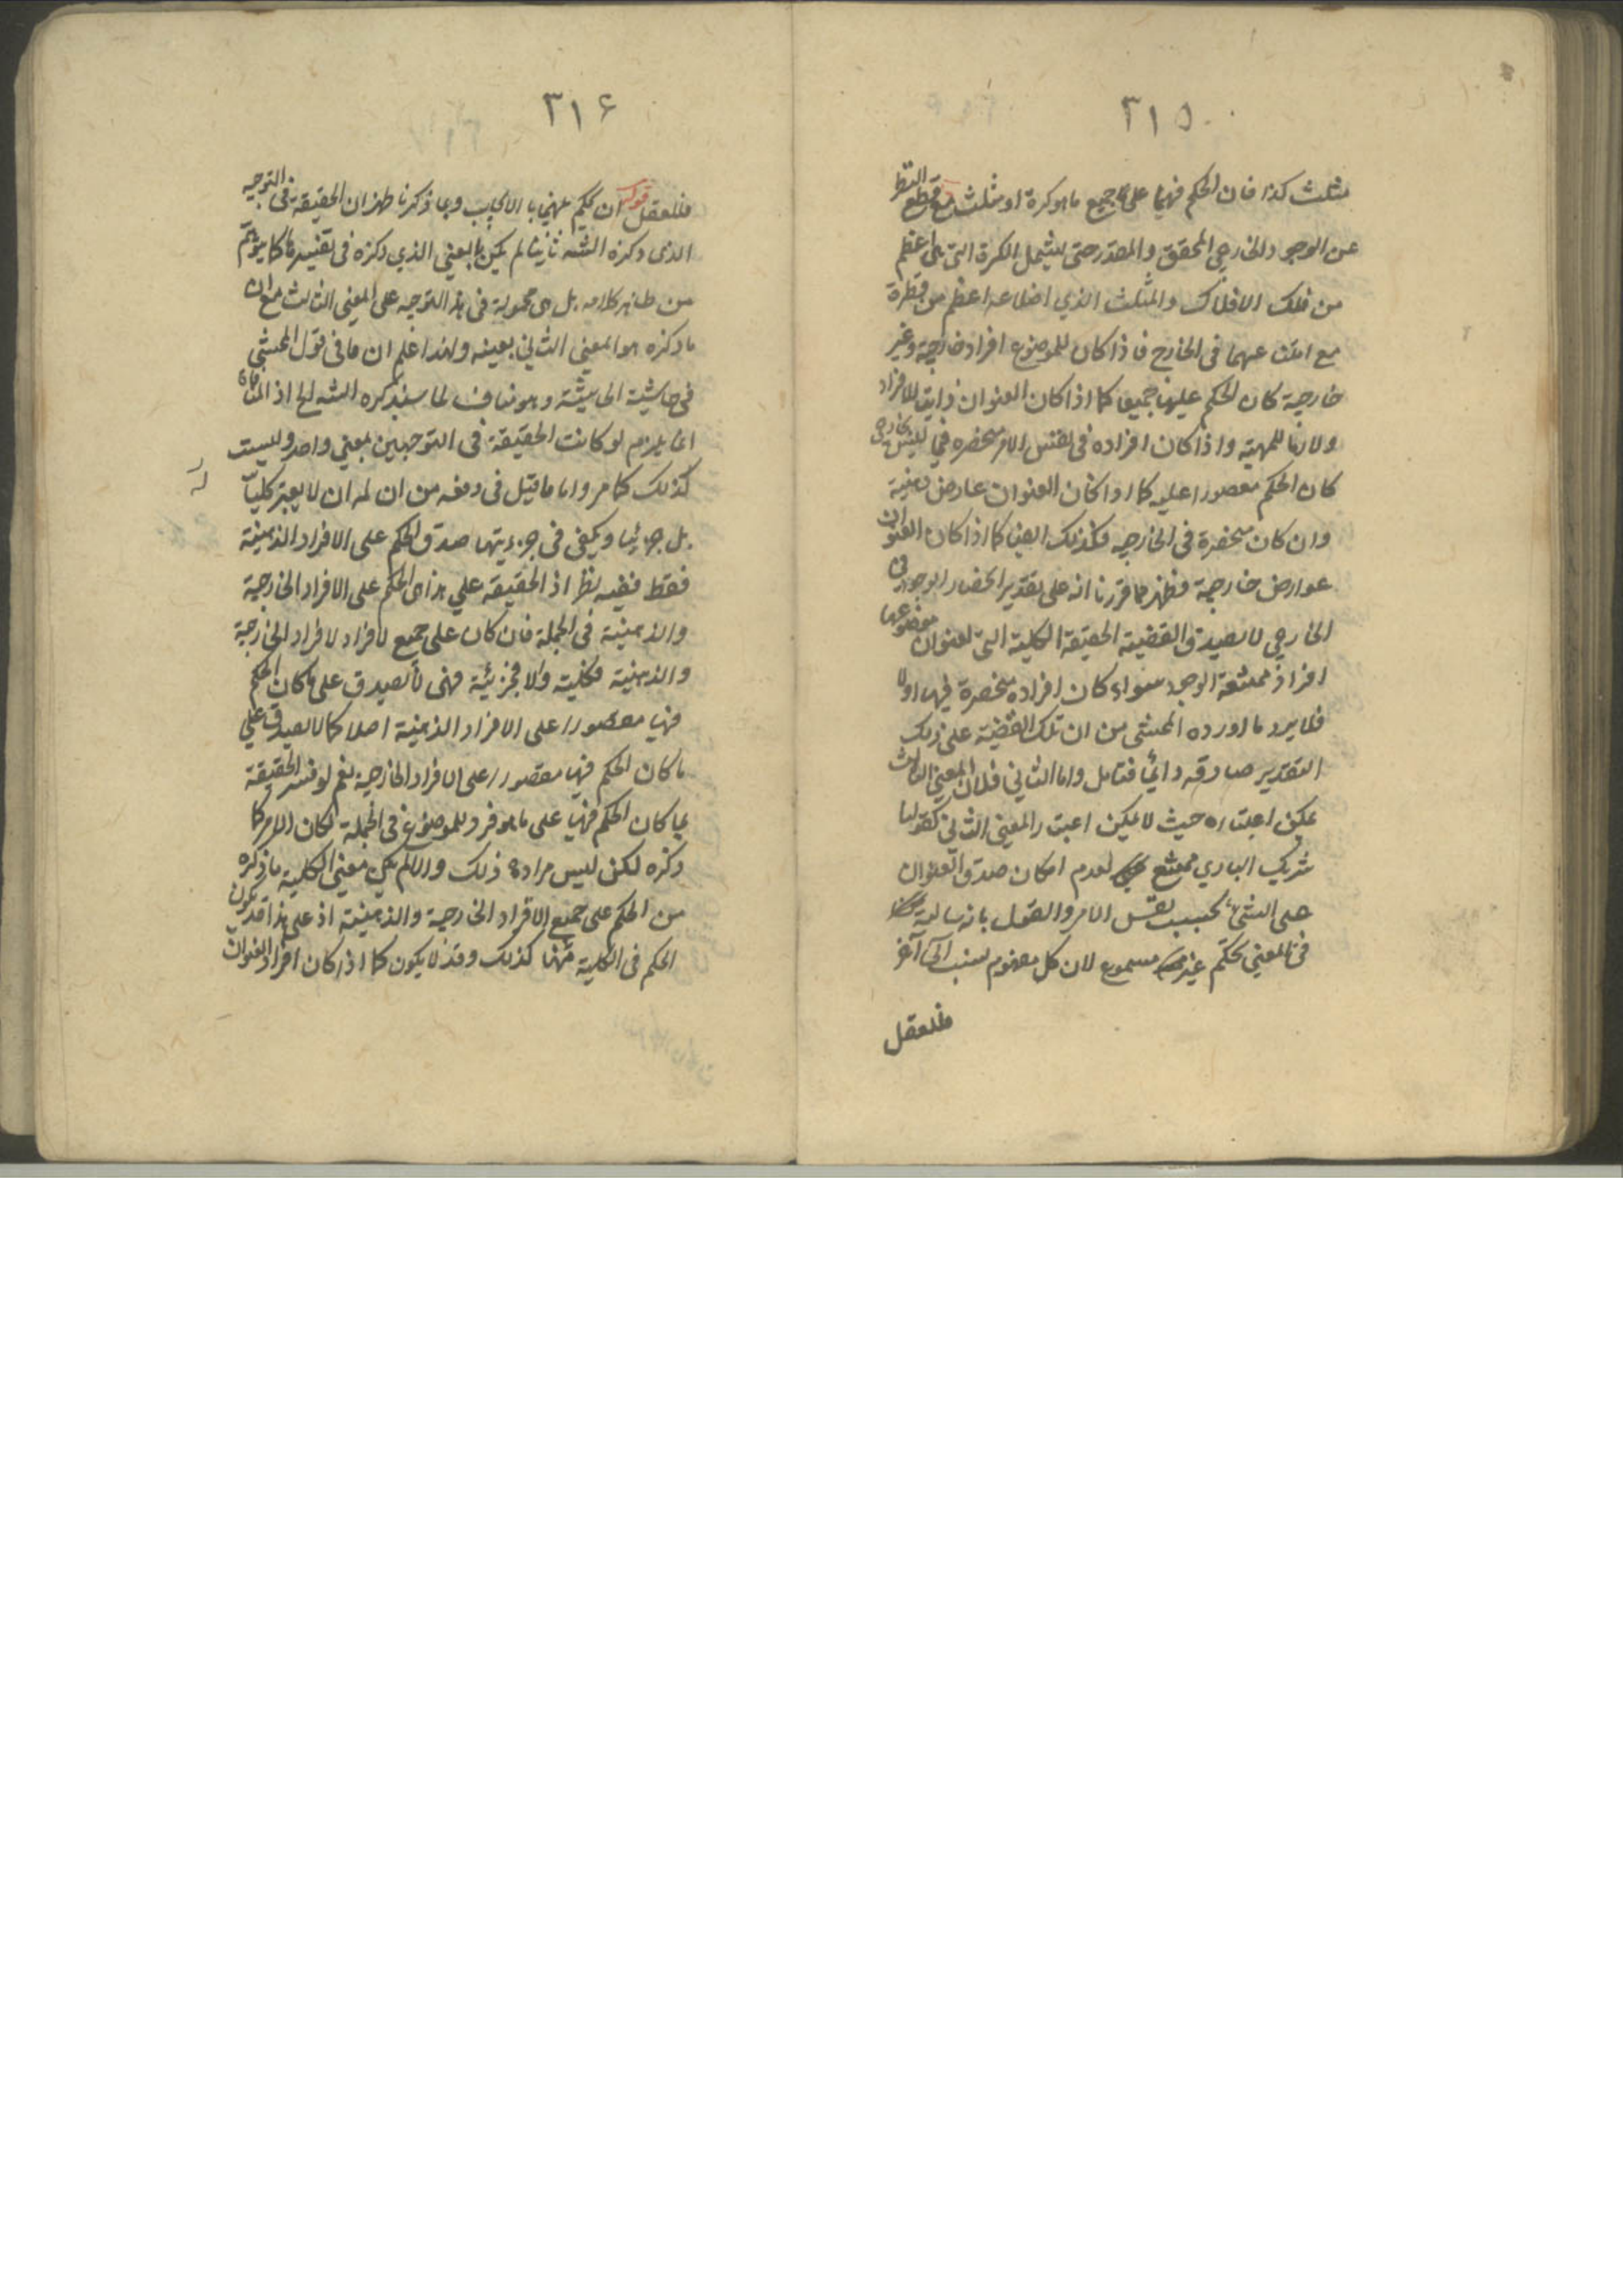 ٣١٥
مثلث كذا فان الحكم فيهما على جميع ما هو كرة او مثلث مع قطع النظر
عن الوجود الخارجي المحقق والمقدر حتى يشمل الكرة التى هى اعظم
من فلك الافلاك والمثلث الذي اضلاعه اعظم من قطره
مع امتناعهما فى الخارج فاذا كان للموضوع افراد خارجية وغير
خارجية كان الحكم عليها جميعا كما اذا كان العنوان ذاتيا للافراد
ولازما للمهية واذا كان افراده فى نفس الامر منحصره فيما ليس بخارجى
كان الحكم مقصورا عليه كما اذا كان العنوان عارض ذهنية
وان كان منحصرة فى الخارجيه فكذلك ايضا كما اذا كان العنوان
عوارض خارجية فظهر مما قررنا انه على تقدير انحصار الوجود فى
الخارجي لا يصدق القضية الحقيقة الكلية التى لعنوان موضوعها
افراد ممتنعة الوجود سواء كان افراده منحصرة فيها اولا
فلا يرد ما اورده المحشى من ان تلك القضية على ذلك
التقدير صادقه دائما فتامل واما الثاني فلان المعنى الثالث
يمكن اعتباره حيث لا يمكن اعتبار المعنى الثاني كقولنا
شريك الباري ممتنع لعدم امكان صدق العنوان
على الشئ بحسب نفس الامر والقول بانه سالبة
فى المعنى تحكم غير مسموع لان كل مفهوم نسب الى آخر
فللعقل
٣١٤
فللعقل قوله ان يحكم بينهما بالايجاب وبما ذكرنا ظهر ان الحقيقة فى التوجيه
الذى ذكره الشه ثانيا لم يكن بالمعنى الذي ذكره فى تفسيرها كما يتوهم
من ظاهر كلامه بل هى محمولة فى هذا التوجيه على المعنى الثالث مع ان
ما ذكره هو المعنى الثاني بعينه ولهذا علم ان ما فى قول المحشى
فى حاشية الحاشية وهو مناف لما سيذكره الشه الخ اذ المنافاة
انما يلزم لو كانت الحقيقة فى التوجيهين بمعنى واحد وليست
كذلك كما مر واما ما قيل فى دفعه من ان له ان لا يعتبر كليا
بل جزئيا ويكفى فى جزءيتها صدق الحكم على الافراد الذهنية
فقط ففيه نظر اذ الحقيقة على هذا هى الحكم على الافراد الخارجية
والذهنية فى الجملة فان كان على جميع الافراد الافراد الخارجية
والذهنية فكلية والا فجزئية فهى لا يصدق على ما كان الحكم
فيها مقصورا على الافراد الذهنية اصلا كما لا يصدق على
ما كان الحكم فيها مقصورا على الافراد الخارجية نعم لو فسر الحقيقة
بما كان الحكم فيها على ما هو فرد للموضوع فى الجملة لكان الامر كما
ذكره لكن ليس مراده ذلك والا لم يكن معنى الكلية ما ذكره
من الحكم على جميع الافراد الخارجية والذهنية اذ على هذا قد يكون
الحكم فى الكلية منها كذلك وقد لا يكون كما اذا كان افراد العنوان